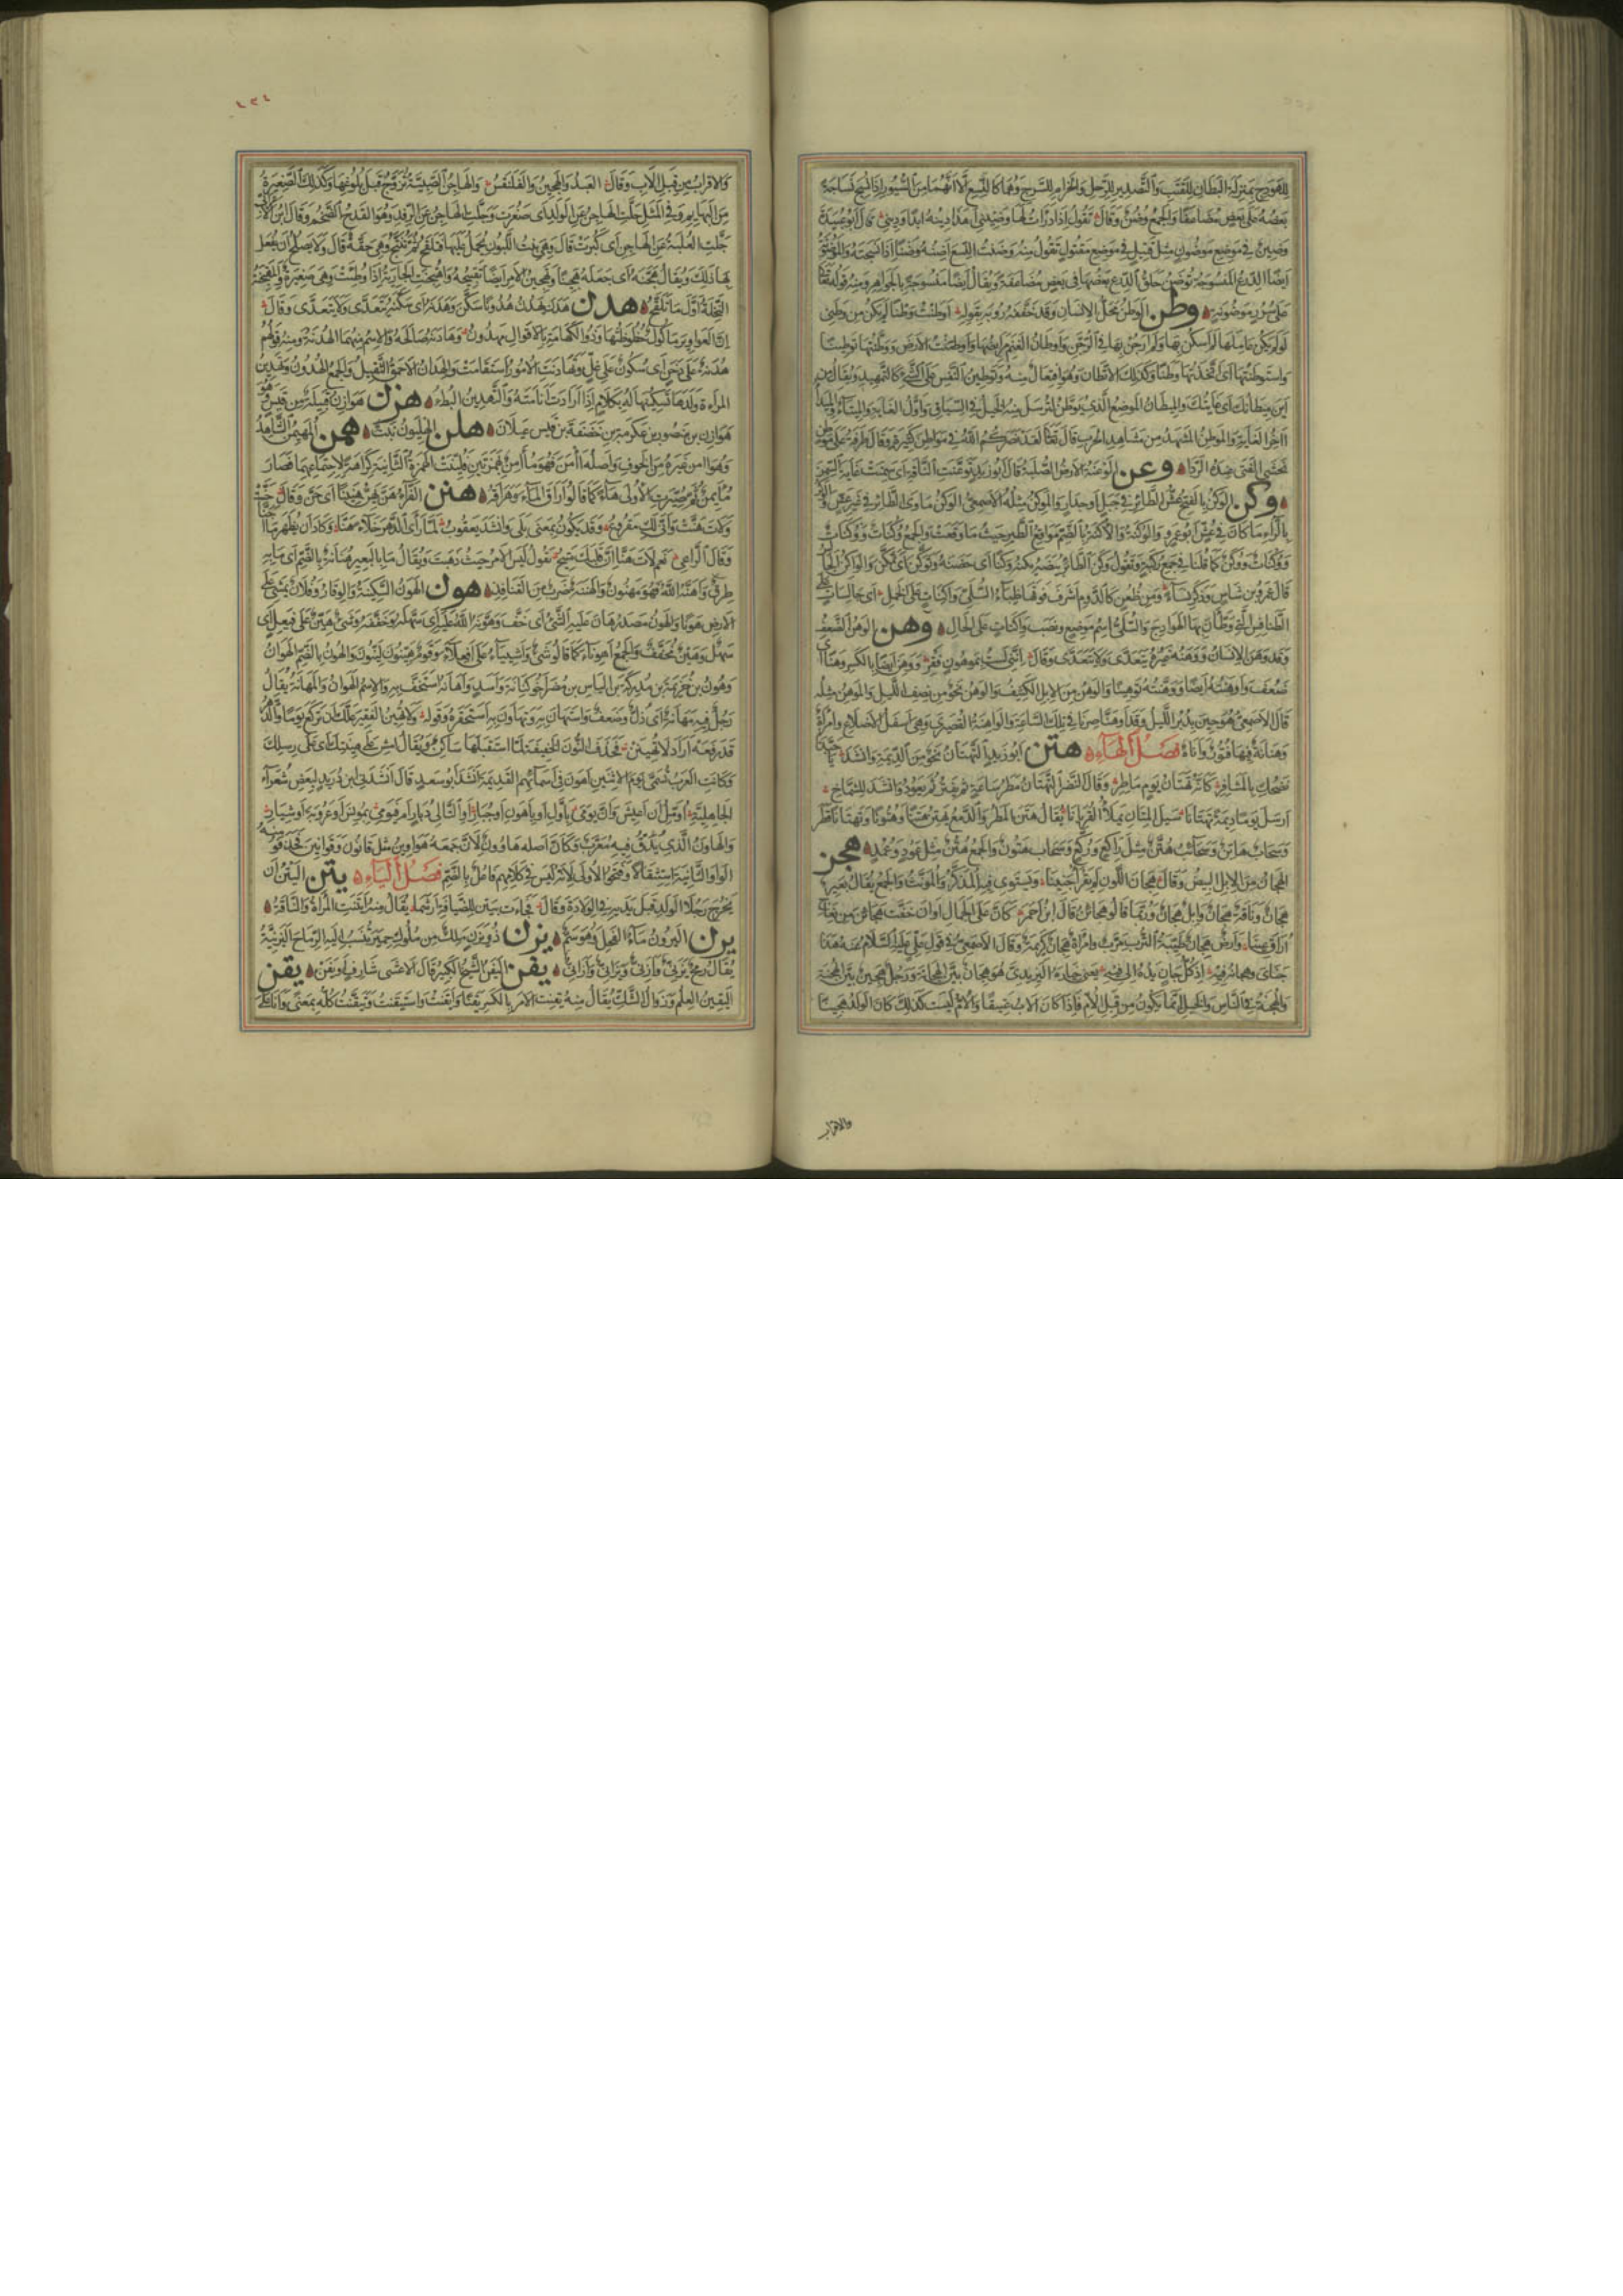 للهودج بمنزلة البطان للقتب والتصدير للرحل والحزام للسرج وهما كالنسع الا انهما من السيور اذا نسج نساجة
بعضه على بعض مضاعفا والجمع وضن وقال تقول اذا درات لها وضيني اهذا دينه ابدا وديني قال ابو عبيدة
وضين في موضع موضون مثل قتيل في موضع مقتول تقول منه وضنت النسع اضنه وضنا اذا نسجته والموضونة
ايضا الدرع المنسوجة توضن حلق الدرع بعضها في بعض مضاعفة ويقال ايضا منسوجة بالجواهر ومنه قوله تعالى
على سرر موضونة وطن الوطن محل الانسان وقد خففه رؤبة بقوله اوطنت وطنا لم يكن من وطني
لو لم يكن عاملها لم اسكن بها ولم ارجن بها في الرجن واوطان الغنم مرابضها واوطنت الارض ووطنتها توطينا
واستوطنتها اي اتخذتها وطنا وكذلك الاتطان وهو افتعال منه وتوطين النفس على الشيء كالتمهيد ويقال من
اين ميطانك اي غايتك والميطان الموضع الذي يوطن لترسل منه الخيل في السباق وهو اول الغاية والميتاء والميداء
اخر الغاية والموطن المشهد من مشاهد الحرب قال تعالى لقد نصركم الله في مواطن كثيرة وقال طرفة على موطن
يخشى الفتى عنده الردا وعن الوعنة الارض الصلبة قال ابو زيد توعنت الناقة اي سمنت غاية السمن
وكن الوكن بالفتح عش الطائر في جبل او جدار والموكن مثله الاصمعي الوكن ماوى الطائر في غير عش والوكر
بالراء ما كان في عش ابو عمرو والوكنة والاكنة بالضم مواقع الطير حيث ما وقعت والجمع وكنات ووكنات
ووكنات ووكن كما قلنا في جمع ركبة وتقول وكن الطائر بيضه يكنه وكنا اي حضنه وتوكن اي تمكن والواكن الجالس
قال عمرو بن شاس وذكر نساء ومن ظعن كالدوم اشرف فوقها ظباء السلي واكنات على الخمل اي جالسات على
الطنافس التي وطئن بها الهوادج والسلي اسم موضع ونصب واكنات على الحال وهن الوهن الضعف
وقد وهن الانسان ووهنه غيره يتعدى ولا يتعدى وقال انني لست بموهون فقر ووهن ايضا بالكسر وهنا اي
ضعف واوهنته ايضا ووهنته توهينا والوهن من الابل الكثيف والوهن نحو من نصف الليل والموهن مثله
قال الاصمعي هو حين يدبر الليل وقد اوهنا صرنا في تلك الساعة والواهنة القصيرى وهي اسفل الاضلاع وامراة
وهنانة فيها فتور واناة فصل الهاء هتن ابو زيد التهتان نحو من الديمة وانشد يا حبذا
نضحك بالمشافر كانه تهتان يوم ماطر وقال النضر التهتان مطر ساعة ثم يفتر ثم يعود وانشد للشماخ
ارسل يوما ديمة تهتانا سيل المتان يملأ القريانا يقال هتن المطر والدمع يهتن هتنا وهتونا وتهتانا قطر
وسحاب هاتن وسحائب هتن مثل راكع وركع وسحاب هتون والجمع هتن مثل عمود وعمد هجن
الهجان من الابل البيض وقال هجان اللون لم تقرا جنينا ويستوي فيه المذكر والمونث والجمع يقال بعير
هجان وناقة هجان وابل هجان وربما قالوا هجائن قال ابن احمر كان على الجمال اوان خفت هجائن من نعاج
اوراق عينا وارض هجان طيبة الترب بعرب وامراة هجان كريمة وقال الاصمعي في قول علي عليه السلام هذا
جناي وهجانه فيه اذ كل جان يده الى فيه يعني خياره اليزيدي هو هجان بين الهجانة ورجل هجين بين الهجنة
والهجنة في الناس والخيل انما تكون من قبل الام فاذا كان الاب عتيقا والام ليست كذلك كان الولد هجينا
والاقراب
٤٣٤
والاقراب من قبل الاب وقال العبد والهجين والفلنقس والهاجن الصبية تزوج قبل بلوغها وكذلك الصغيرة
من البهايم وفي المثل جلت الهاجن عن الولد اي صغرت وجلت الهاجن عن الرفد وهو القدح الضخم وقال ابن الاعرابي
جلت العلبة عن الهاجن اي كبرت قال وهي بنت اللبون يحمل عليها فتلقح ثم تنتج وهي حقة قال ولا يصلح ان يفعل
بها ذلك ويقال هجنه اي جعله هجينا وتهجين الامر ايضا تقبيحه واهتجنت الجارية اذا وطئت وهي صغيرة والمهتجنة
النخلة اول ما تلقح هدن هدن يهدن هدونا سكن وهدنه اي سكنه يتعدى ولا يتعدى وقال
ان العواوير ماكول حظوظتها وذو الكهامة بالاقوال مهدون وهادنه صالحه والاسم منهما الهدنة ومنه قولهم
هدنة على دخن اي سكون على غل وتهادنت الامور استقامت والهدان الاحمق الثقيل والجمع الهدون وتهدين
المراة ولدها تسكينها له بكلام اذا ارادت انامته والتهدين البطء هزن هوازن قبيلة من قيس وهو
هوازن بن منصور بن عكرمة بن خصفة بن قيس عيلان هلن الهليون نبت همن المهيمن الشاهد
وهو من امن غيره من الخوف واصله اامن فهو مؤامن بهمزتين قلبت الهمزة الثانية كراهة لاجتماعهما فصار
مؤيمن ثم صيرت الاولى هاء كما قالوا اراق الماء وهراقه هنن الفراء هن يهن هنينا اي حن وقال حنت
ولات هنت واتى لك مقروع وقد يكون بمعنى بكى وانشد يعقوب لما راى الدار خلاء هنا وكاد ان يظهر ما اجنا
وقال الراعي نعم لات هنا ان قلبك متيح تقول ليس الامر حيث ذهبت ويقال ما بالبعير هنانة بالضم اي ما به
طرق واهنه الله فهو مهنون والهننة ضرب من القنافذ هون الهون السكينة والوقار وفلان يمشي على
الارض هونا والهون مصدر هان عليه الشيء اي خف وهونه الله عليه اي سهله وخففه وشيء هين على فيعل اي
سهل وهين مخفف والجمع اهوناء كما قالوا شيء واشياء على افعلاء وقوم هينون لينون والهون بالضم الهوان
وهون بن خزيمة بن مدركة بن الياس بن مضر اخو كنانة واسد واهانه استخف به والاسم الهوان والمهانة يقال
رجل فيه مهانة اي ذل وضعف واستهان به وتهاون به استحقره وقوله ولا تهين الفقير علك ان تركع يوما والدهر
قد رفعه اراد لا تهينن فحذف النون الخفيفة لما استقبلها ساكن ويقال امش على هينتك اي على رسلك
وكانت العرب تسمى يوم الاثنين اهون في اسمائهم القديمة انشد ابو سعيد قال انشدني ابن دريد لبعض شعراء
الجاهلية اؤمل ان اعيش وان يومي باول او باهون او جبار او التالي دبار ام فيومي بمونس او عروبة او شيار
والهاون الذي يدق فيه معرب وكان اصله هاوون لان جمعه هواوين مثل قانون وقوانين فحذفوا منه
الواو الثانية استثقالا وفتحوا الاولى لانه ليس في كلامهم فاعل بالضم فصل الياء يتن اليتن ان
يخرج رجلا الولد قبل يديه في الولادة وقال فجاءت بيتن للضيافة ارشما يقال منه ايتنت المراة والناقة
يرن اليرون ماء الفحل وهو سم يزن ذو يزن ملك من ملوك حمير تنسب اليه الرماح اليزنية
يقال رمح يزني وازني ويزاني وازاني يفن اليفن الشيخ الكبير قال الاعشى شارف او يفن يقن
اليقين العلم وزوال الشك يقال منه يقنت الامر بالكسر يقنا وايقنت واستيقنت وتيقنت كله بمعنى وانا على